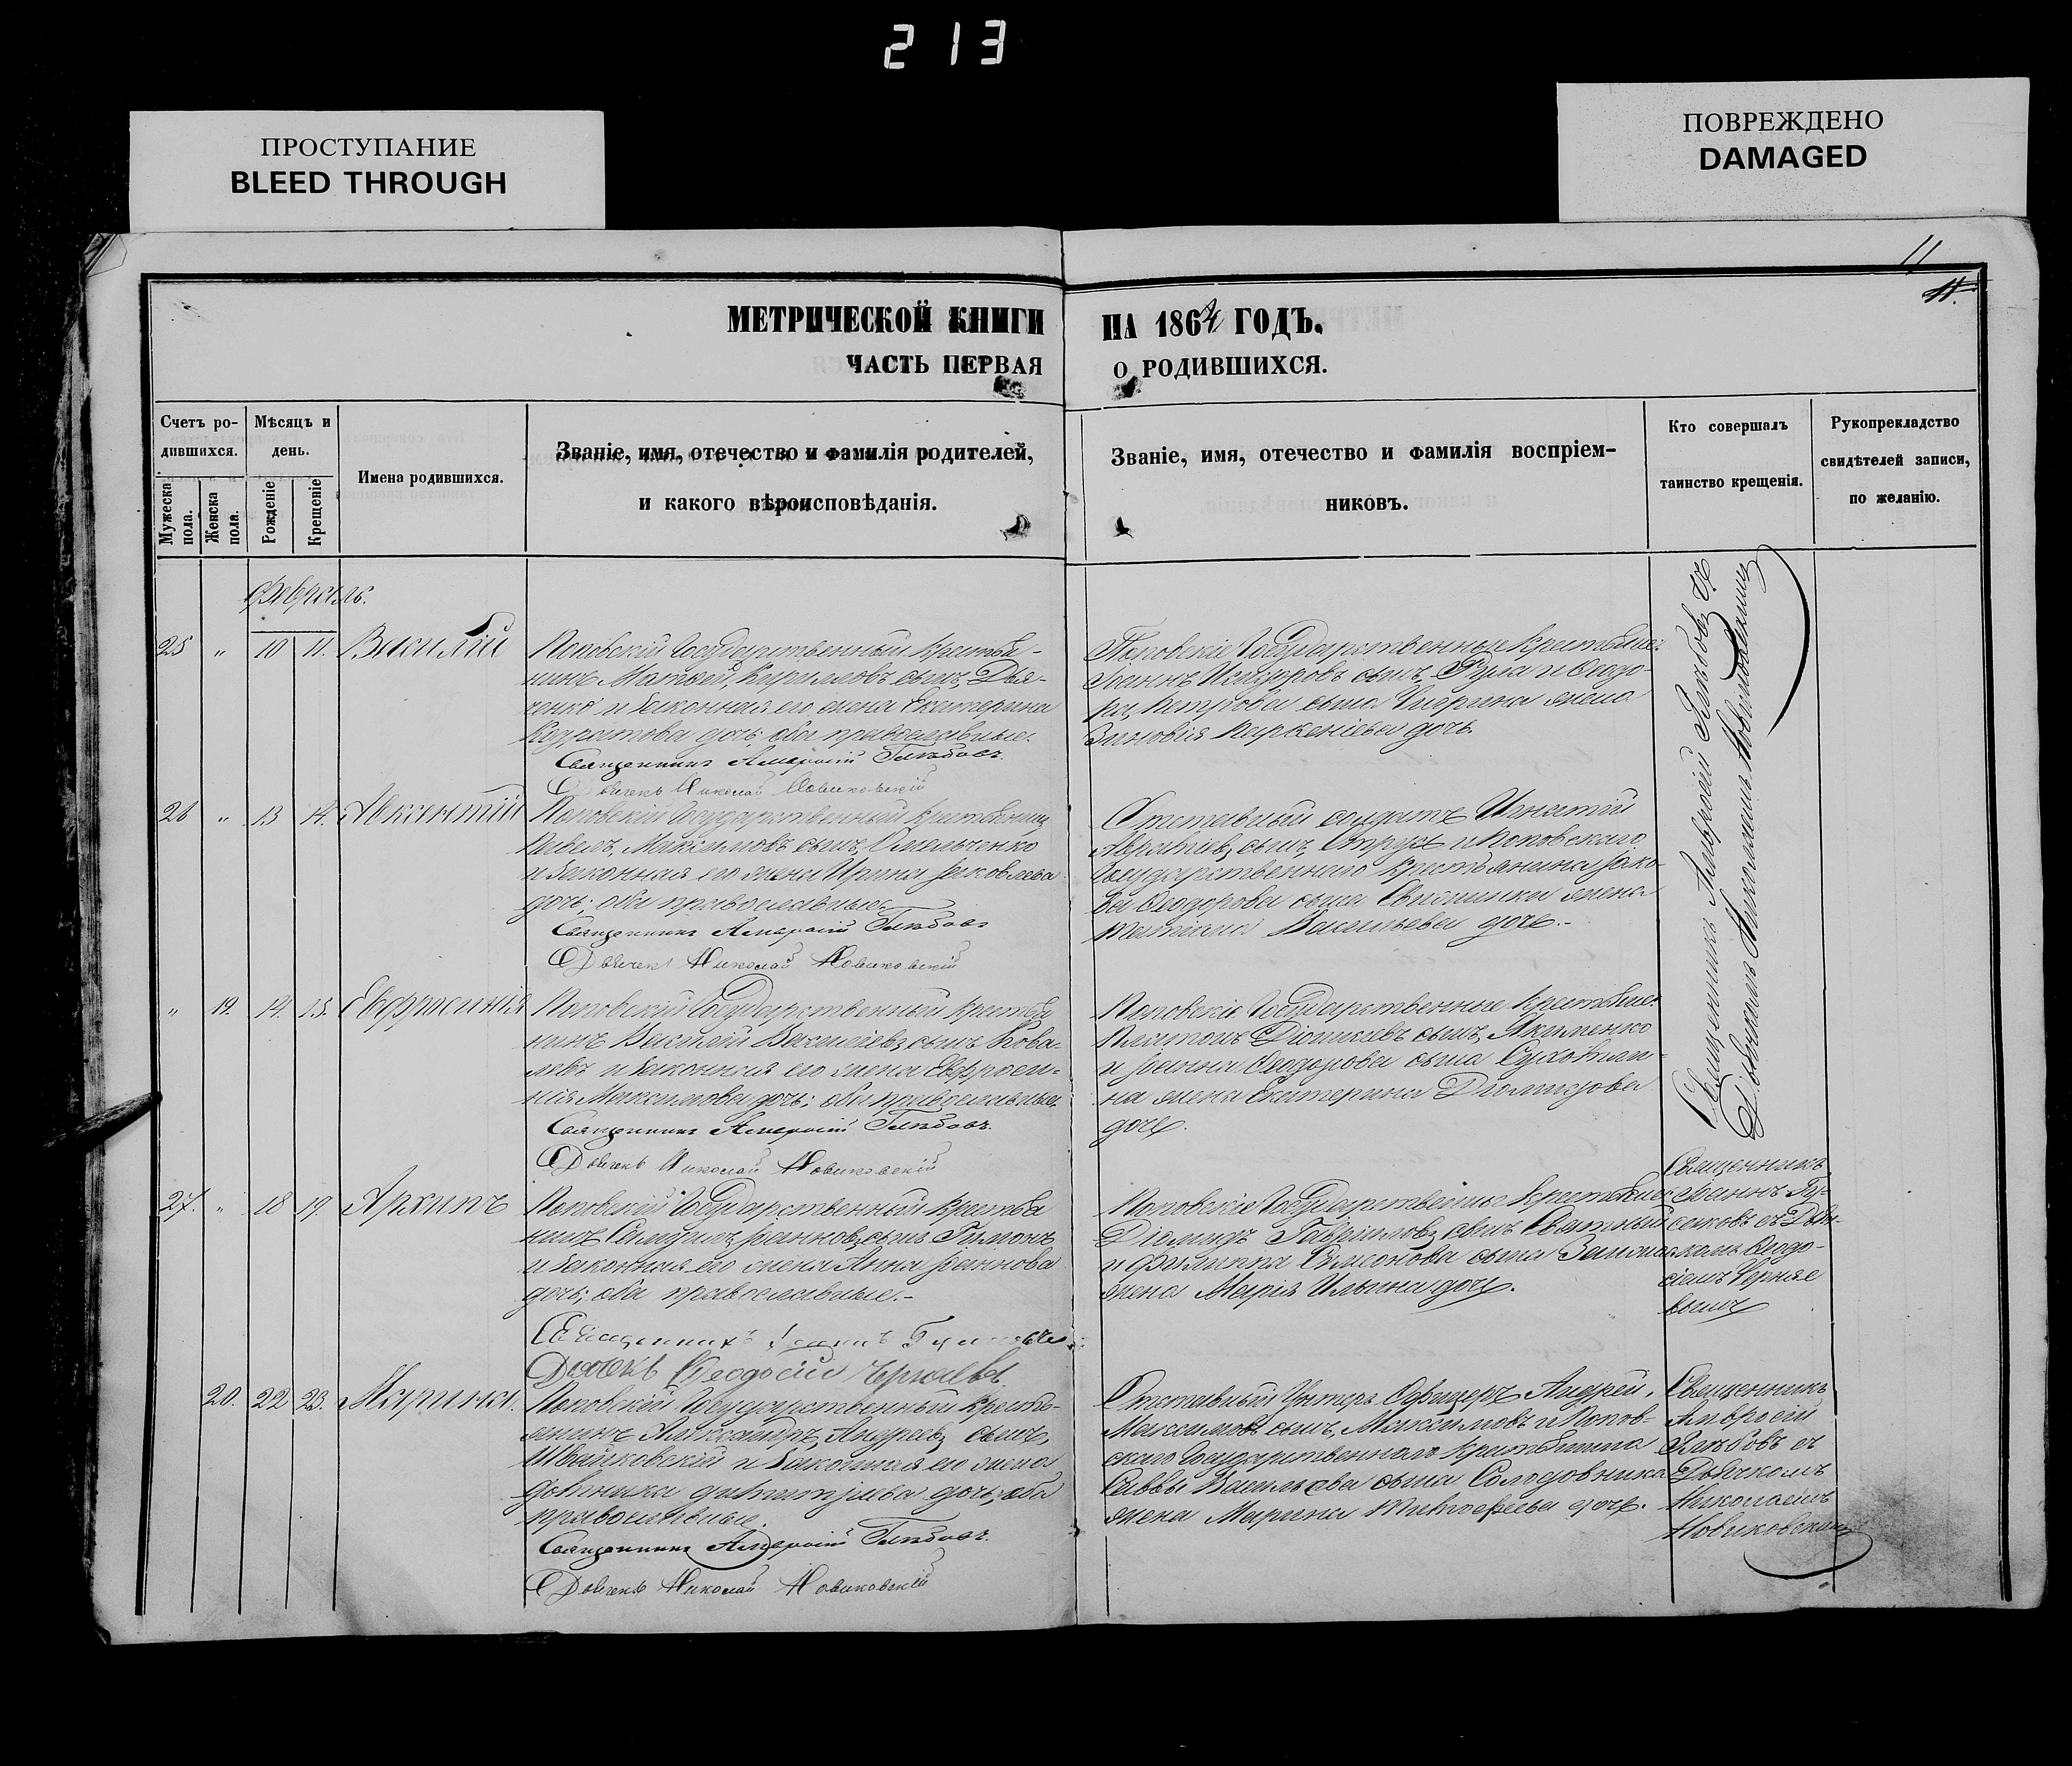 213
ПРОСТУПАНИЕ
BLEED THROUGH
ПОВРЕЖДЕНО
DAMAGED
11
11.
МЕТРИЧЕСКОЙ КНИГИ НА 1864 ГОДЪ.
ЧАСТЬ ПЕРВАЯ О РОДИВШИХСЯ.
Счетъ ро-
дившихся.
Мужеска
пола.
Женска
пола.
Мѣсяцъ и
день.
Рожденіе
Крещеніе
Имена родившихся.
Званіе, имя, отечество и фамилія родителей,
и какого вѣроисповѣданія.
Званіе, имя, отечество и фамилія воспріем-
никовъ.
Кто совершалъ
таинство крещенія.
Рукоприкладство
свидѣтелей записи,
по желанію.
Февраль.
25 " 10 11. Василій
Поповскій Государственный Крестья-
нинъ Матвей, Кириловъ сынъ, Дья-
ченко и законная его жена Екатерина
дочь; оба православные.
Священникъ Амвросій Глѣбовъ.
Дьячекъ Николай Новиковскій
Поповскіе Государственные Крестьяне:
Іоаннъ Исидоровъ сынъ, и Ѳеодо-
ра, Петрова сына жена
Зиновія Парѳеніева дочь.
Священникъ Амвросій Глѣбовъ съ
Дьячкомъ Николаемъ Новиковскимъ
26 " 13 14. Авксентій
Поповскій Государственный Крестьянинъ
Павелъ, Максимовъ сынъ, Омельченко
и законная его жена Ирина Іаковлева
дочь; оба православные
Священникъ Амвросій Глѣбовъ
Дьячекъ Николай Новиковскій
Отставный солдатъ Игнатій
сынъ, и Поповскаго
Государственнаго Крестьянина Іако-
ва Ѳеодорова сына жена
Татіана Васильева дочь.-
" 19. 14. 15. Евфросинія
Поповскій Государственный Крестья
нинъ Василій Василіевъ сынъ Кова-
левъ и законная его жена Евфроси-
нія Максимова дочь; оба православные.
Священникъ Амвросій Глѣбовъ.
Дьячекъ Николай Новиковскій
Поповскіе Государственные Крестьяне:
Платонъ сынъ, Акименко
и Іоанна Ѳеодорова сына
на жена Екатерина Діомидова
дочь.
27. " 18 19. Архипъ
Поповскій Государственный Крестья
нинъ Самуилъ Іоанновъ сынъ
и законная его жена Анна Іоаннова
дочь; оба православные.-
Священникъ Іоаннъ
Дьячекъ Ѳеодосій
Поповскіе Государственные Крестьяне:
Діомидъ Гавріиловъ сынъ
и Филиппа Самсонова сына
жена Марія Ильина дочь.
Священникъ
Іоаннъ Гу-
съ Дьяч-
комъ Ѳеодо-
сіемъ Черняе
вымъ
20. 22 23. Марина.
Поповскій Государственный Кресть-
янинъ Александръ, Андреевъ сынъ,
Швайковскій и законная его жена
Домникія Димитріева дочь; оба
православные.
Священникъ Амвросій Глѣбовъ.
Дьячекъ Николай Новиковскій
Отставный Унтеръ Офицеръ Андрей,
Максимовъ сынъ, Максимовъ и Попов-
скаго Государственнаго Крестьянина
Саввы Васильева сына Солодовника
жена Марина Тимофеева дочь.
Священникъ
Амвросій
Глѣбовъ съ
Дьячкомъ
Николаемъ
Новиковскимъ